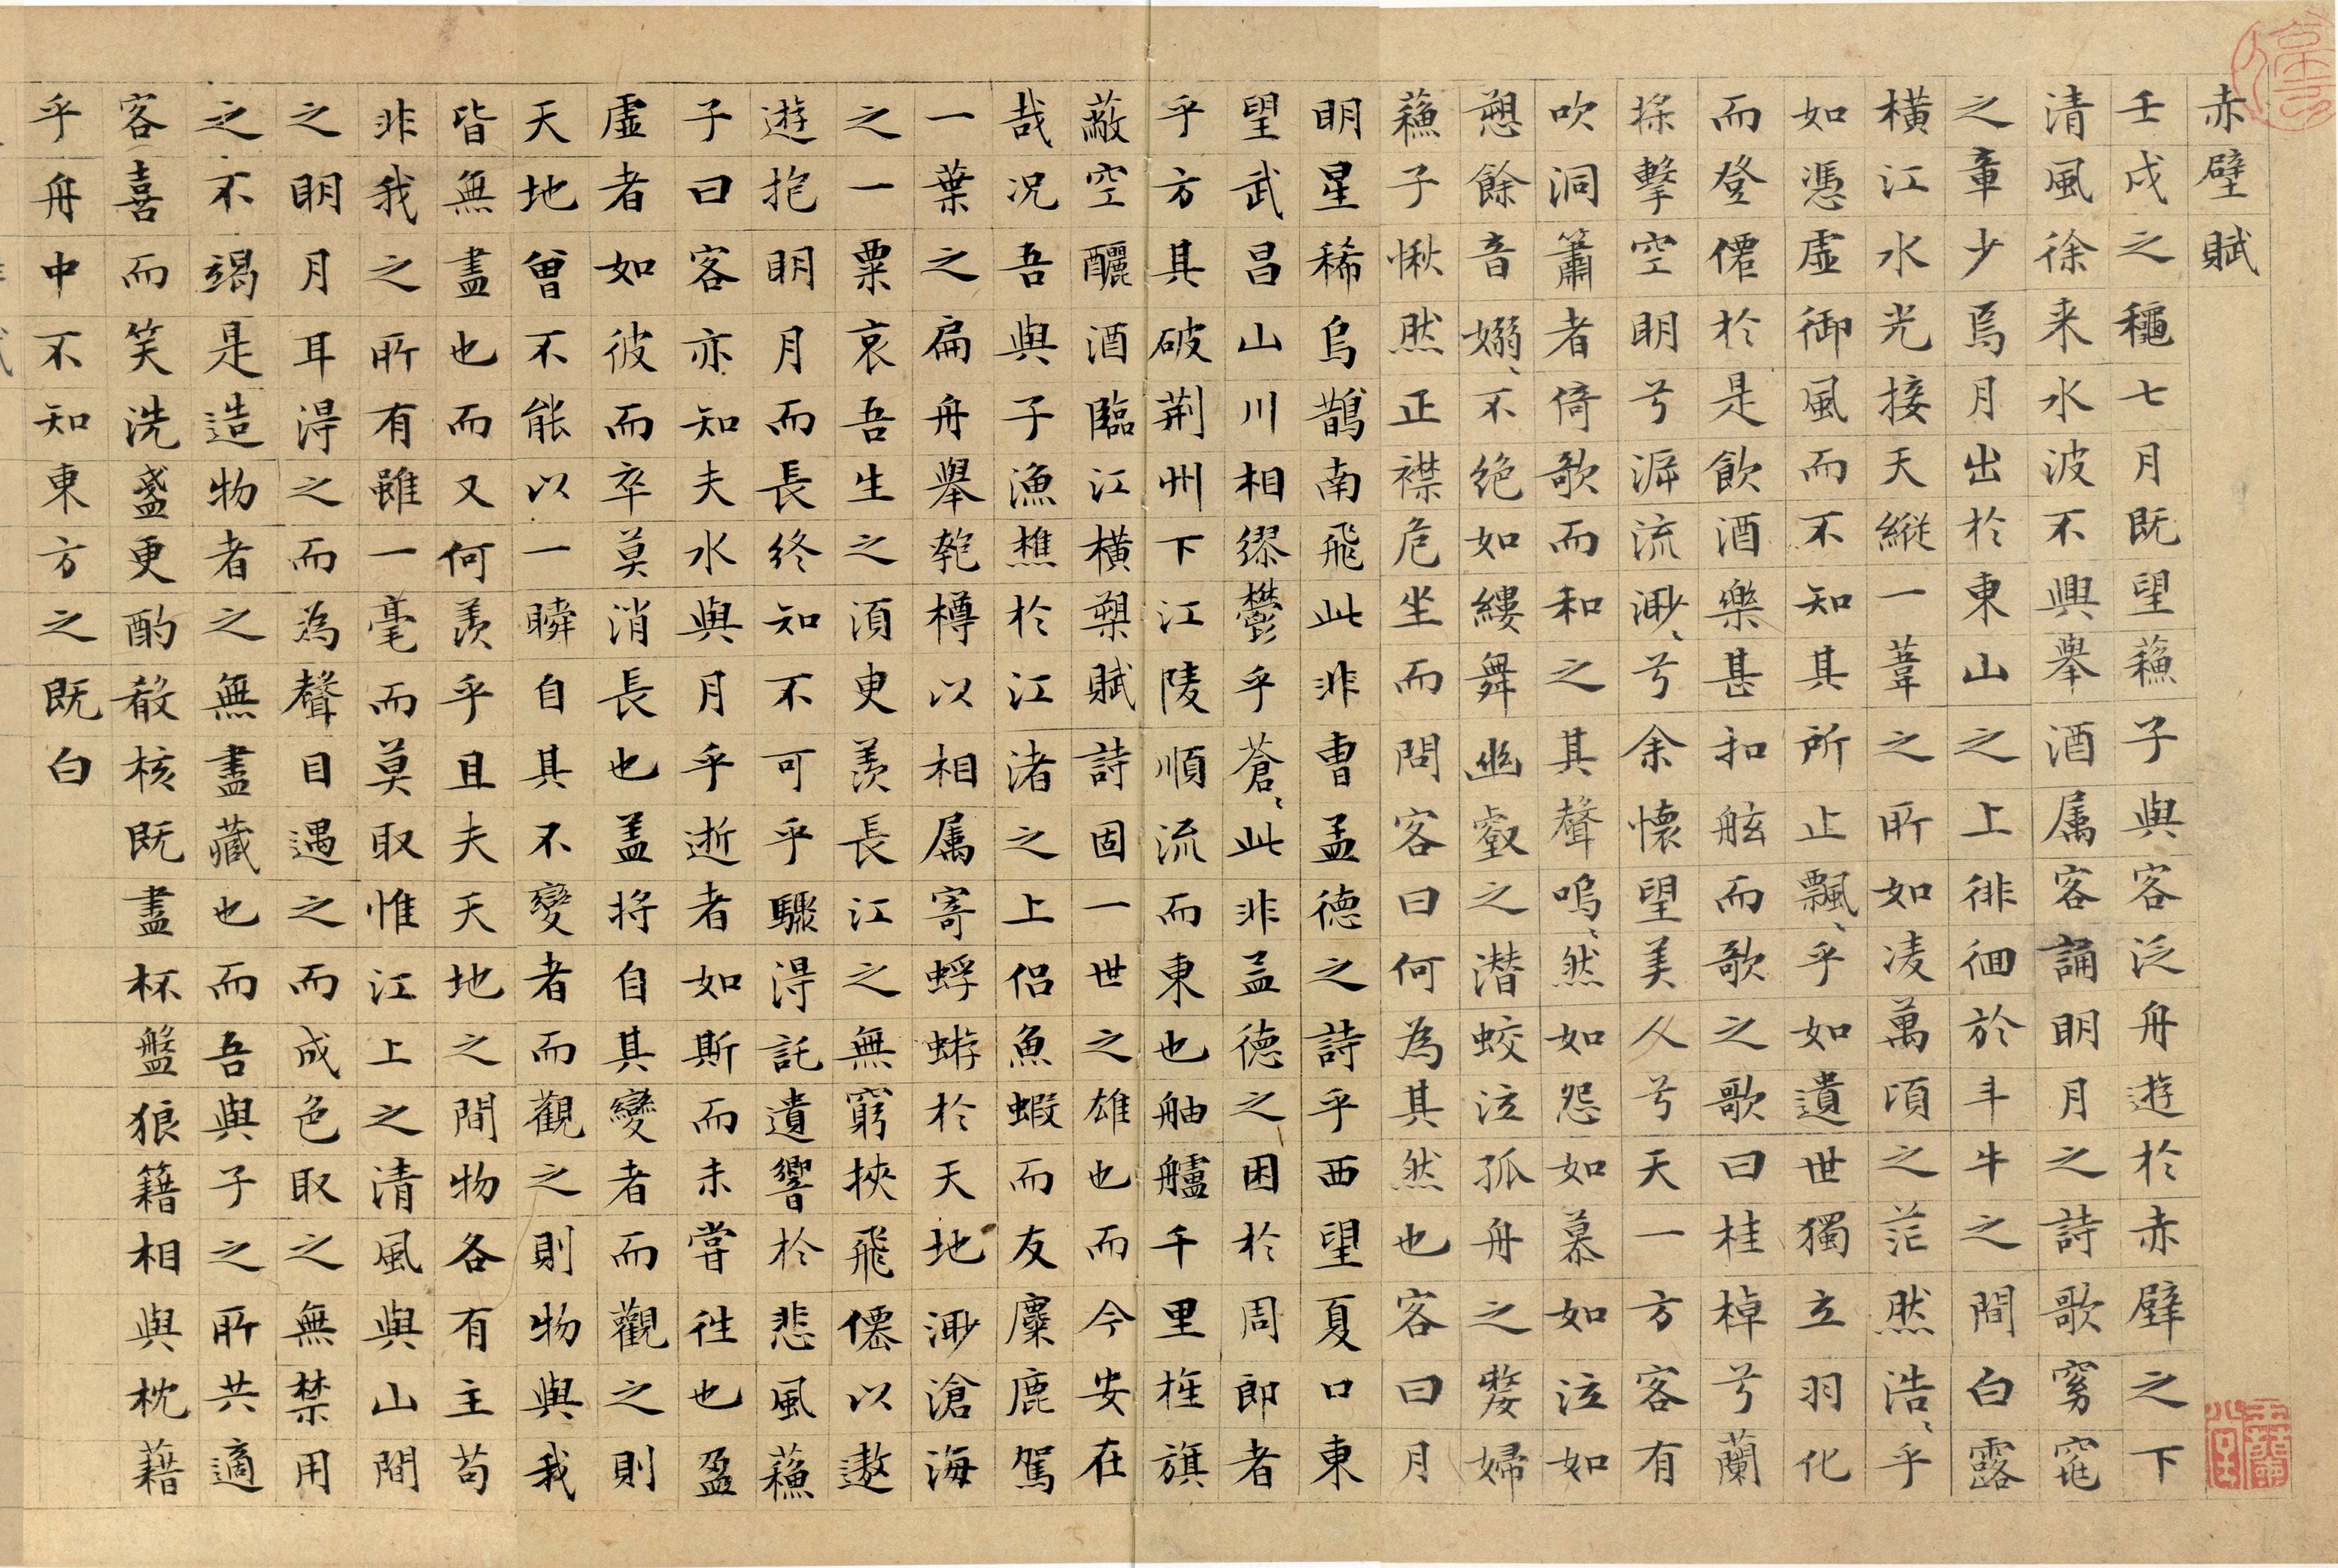 赤壁賦
壬戌之穐七月既望蘓子與客泛舟遊於赤壁之下
清風徐来水波不興舉酒属客誦明月之詩歌窈窕
之章少焉月出於東山之上徘徊於斗牛之間白露
橫江水光接天縱一葦之所如凌萬頃之茫然浩〻乎
如憑虛御風而不知其所止飄〻乎如遺世獨立羽化
而登僊於是飲酒樂甚扣舷而歌之歌曰桂棹兮蘭
搖擊空明兮泝流渺〻兮余懷望美人兮天一方客有
吹洞簫者倚歌而和之其聲嗚〻然如怨如慕如泣如
愬餘音嫋〻不絶如縷舞幽壑之潛蛟泣孤舟之嫠婦
蘓子愀然正襟危坐而問客曰何為其然也客曰月
明星稀烏鵲南飛此非曹孟德之詩乎西望夏口東
望武昌山川相繆鬱乎蒼〻此非孟德之困於周郎者
乎方其破荆州下江陵順流而東也舳艫千里旌旗
蔽空釃酒臨江橫槊賦詩固一世之雄也而今安在
哉况吾與子漁樵於江渚之上侣魚蝦而友麋鹿駕
一葉之扁舟舉匏樽以相属寄蜉蝣於天地渺滄海
之一粟哀吾生之須臾羨長江之無窮挾飛僊以遨
遊抱明月而長終知不可乎驟得託遺響於悲風蘓
子曰客亦知夫水與月乎逝者如斯而未嘗往也盈
虛者如彼而卒莫消長也盖將自其變者而觀之則
天地曾不能以一瞬自其不變者而觀之則物與我
皆無盡也而又何羨乎且夫天地之間物各有主苟
非我之所有雖一毫而莫取惟江上之清風與山間
之明月耳得之而為聲目遇之而成色取之無禁用
之不竭是造物者之無盡藏也而吾與子之所共適
客喜而笑洗盞更酌殽核既盡杯盤狼籍相與枕藉
乎舟中不知東方之既白